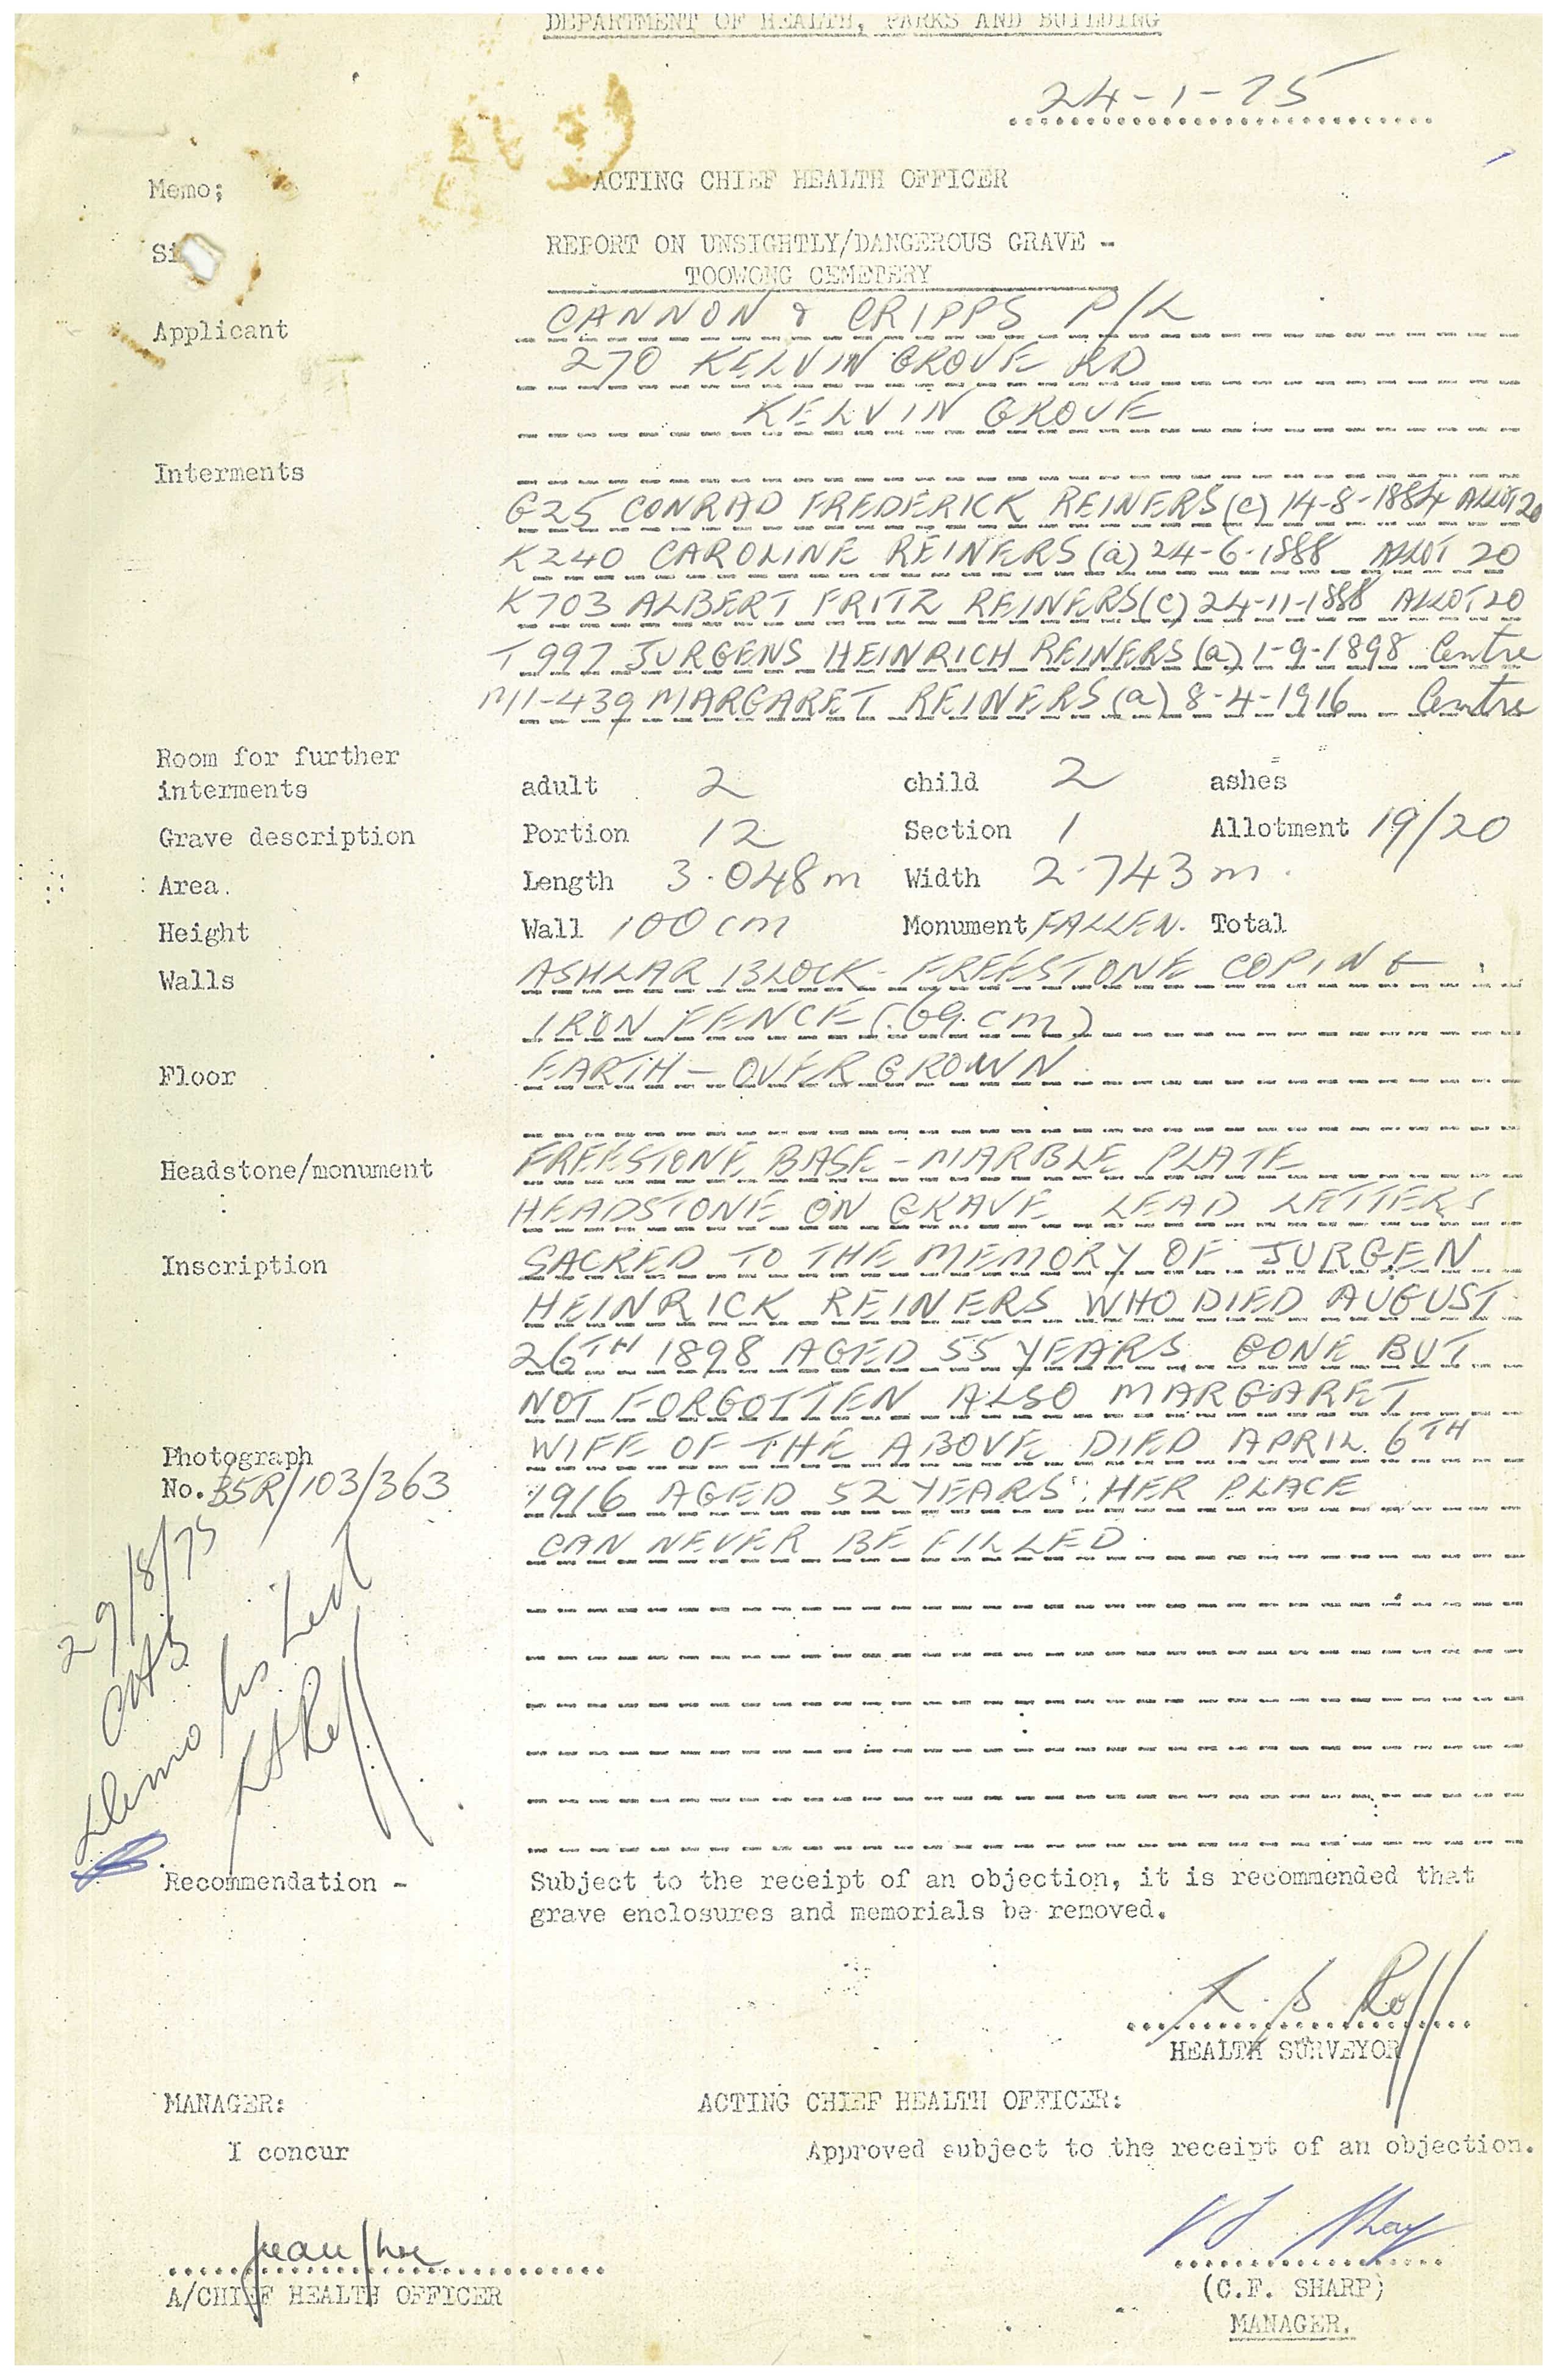 DEPARTMENT OF HEALTH, PARKS AND BUILDING
24-1-75
Memo; ACTING CHIEF HEALTH OFFICER
REPORT ON UNSIGHTLY/DANGEROUS GRAVE -
TOOWONG CEMETERY
Applicant CANNON & CRIPPS P/L
270 KELVIN GROVE RD
KELVIN GROVE
Interments
G25 CONRAD FREDERICK REINERS (c) 14-8-1884 ALLOT 20
K240 CAROLINE REINERS (a) 24-6-1888 ALLOT 20
K703 ALBERT FRITZ REINERS (c) 24-11-1888 ALLOT 20
T997 JURGENS HEINRICH REINERS (a) 1-9-1898 Centre
M11-439 MARGARET REINERS (a) 8-4-1916 Centre
Room for further
interments adult 2 child 2 ashes
Grave description Portion 12 Section 1 Allotment 19/20
Area. Length 3.048m Width 2.743m.
Height Wall 100cm Monument FALLEN. Total
Walls ASHLAR BLOCK - FREESTONE COPING
IRON FENCE (69cm)
Floor EARTH - OVERGROWN
Headstone/monument FREESTONE BASE - MARBLE PLATE
HEADSTONE ON GRAVE LEAD LETTERS
Inscription SACRED TO THE MEMORY OF JURGEN
HEINRICK REINERS WHO DIED AUGUST
26TH 1898 AGED 55 YEARS GONE BUT
NOT FORGOTTEN ALSO MARGARET
Photograph WIFE OF THE ABOVE DIED APRIL 6TH
No. B5R/103/363 1916 AGED 52 YEARS. HER PLACE
CAN NEVER BE FILLED.
29/8/75
Recommendation - Subject to the receipt of an objection, it is recommended that
grave enclosures and memorials be removed.
HEALTH SURVEYOR
MANAGER: ACTING CHIEF HEALTH OFFICER:
I concur Approved subject to the receipt of an objection.
A/CHIEF HEALTH OFFICER
(C.F. SHARP)
MANAGER.